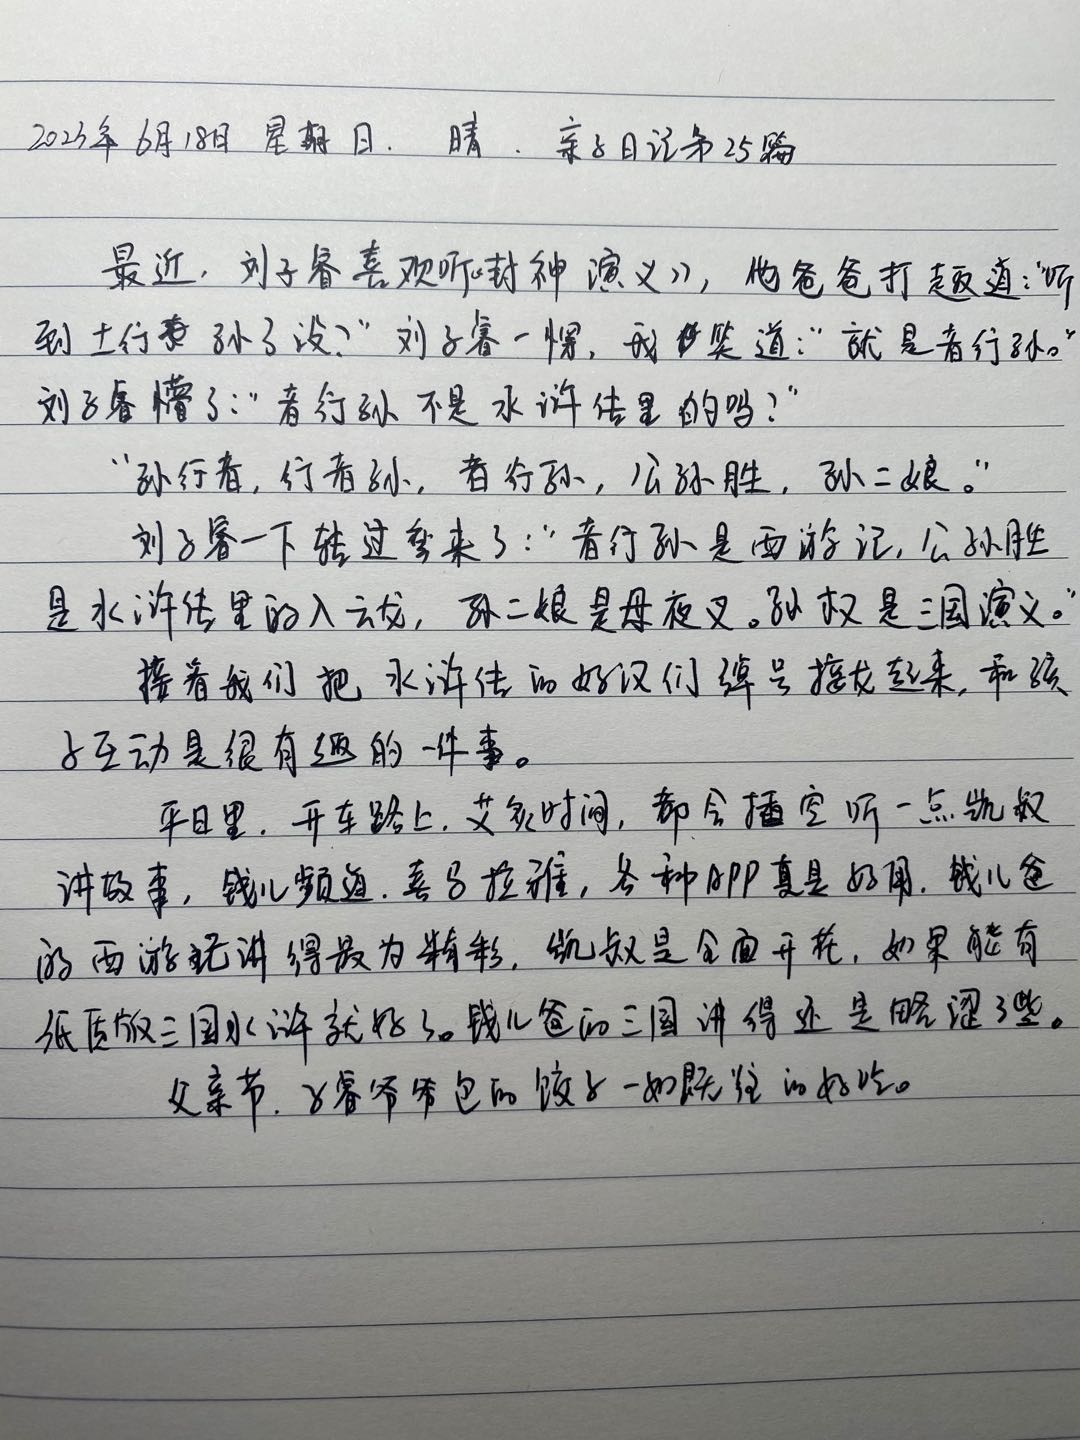 2023年6月18日 星期日. 晴. 亲子日记第25篇
最近,刘子睿喜欢听《封神演义》,他爸爸打趣道:“听
到土行孙了没?”刘子睿一愣,我笑道:“就是者行孙。”
刘子睿懵了:“者行孙不是水浒传里的吗?”
“孙行者,行者孙,者行孙,公孙胜,孙二娘。”
刘子睿一下转过弯来了:“者行孙是西游记,公孙胜
是水浒传里的入云龙,孙二娘是母夜叉。孙权是三国演义。”
接着我们把水浒传的好汉们绰号接龙起来,和孩
子互动是很有趣的一件事。
平日里,开车路上,艾灸时间,都会插空听一点凯叔
讲故事,钱儿频道.喜马拉雅,各种APP真是好用.钱儿爸
的西游记讲得最为精彩,凯叔是全面开花,如果能有
纸质版三国水浒就好了。钱儿爸的三国讲得还是略逊了些。
父亲节,子睿爷爷包的饺子一如既往的好吃。